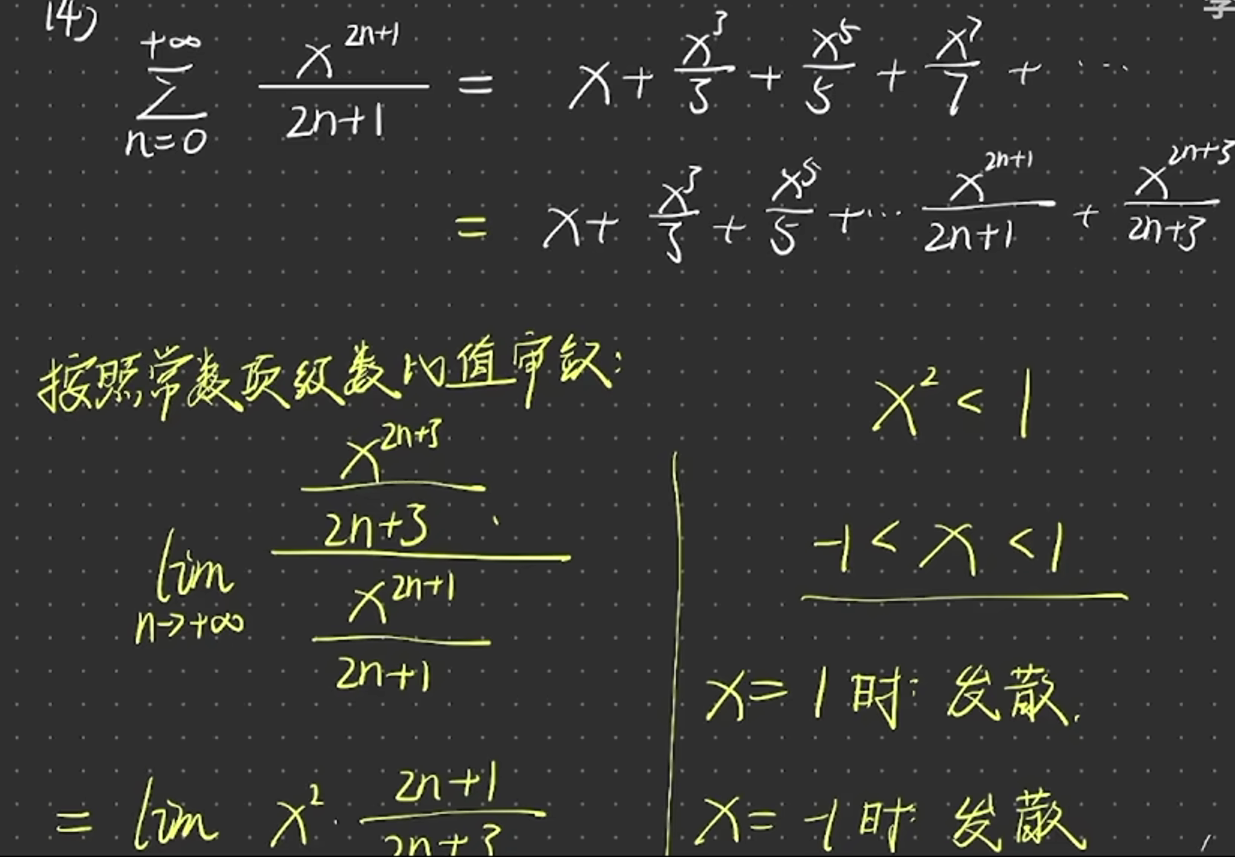 (4)
\sum_{n=0}^{+\infty} \frac{x^{2n+1}}{2n+1} = x + \frac{x^3}{3} + \frac{x^5}{5} + \frac{x^7}{7} + \cdots
= x + \frac{x^3}{3} + \frac{x^5}{5} + \cdots \frac{x^{2n+1}}{2n+1} + \frac{x^{2n+3}}{2n+3}
按照常数项级数比值审敛:
\lim_{n \to +\infty} \frac{\frac{x^{2n+3}}{2n+3}}{\frac{x^{2n+1}}{2n+1}}
= \lim x^2 \cdot \frac{2n+1}{2n+3}
x^2 < 1
-1 < x < 1
x = 1 时: 发散.
x = -1 时: 发散